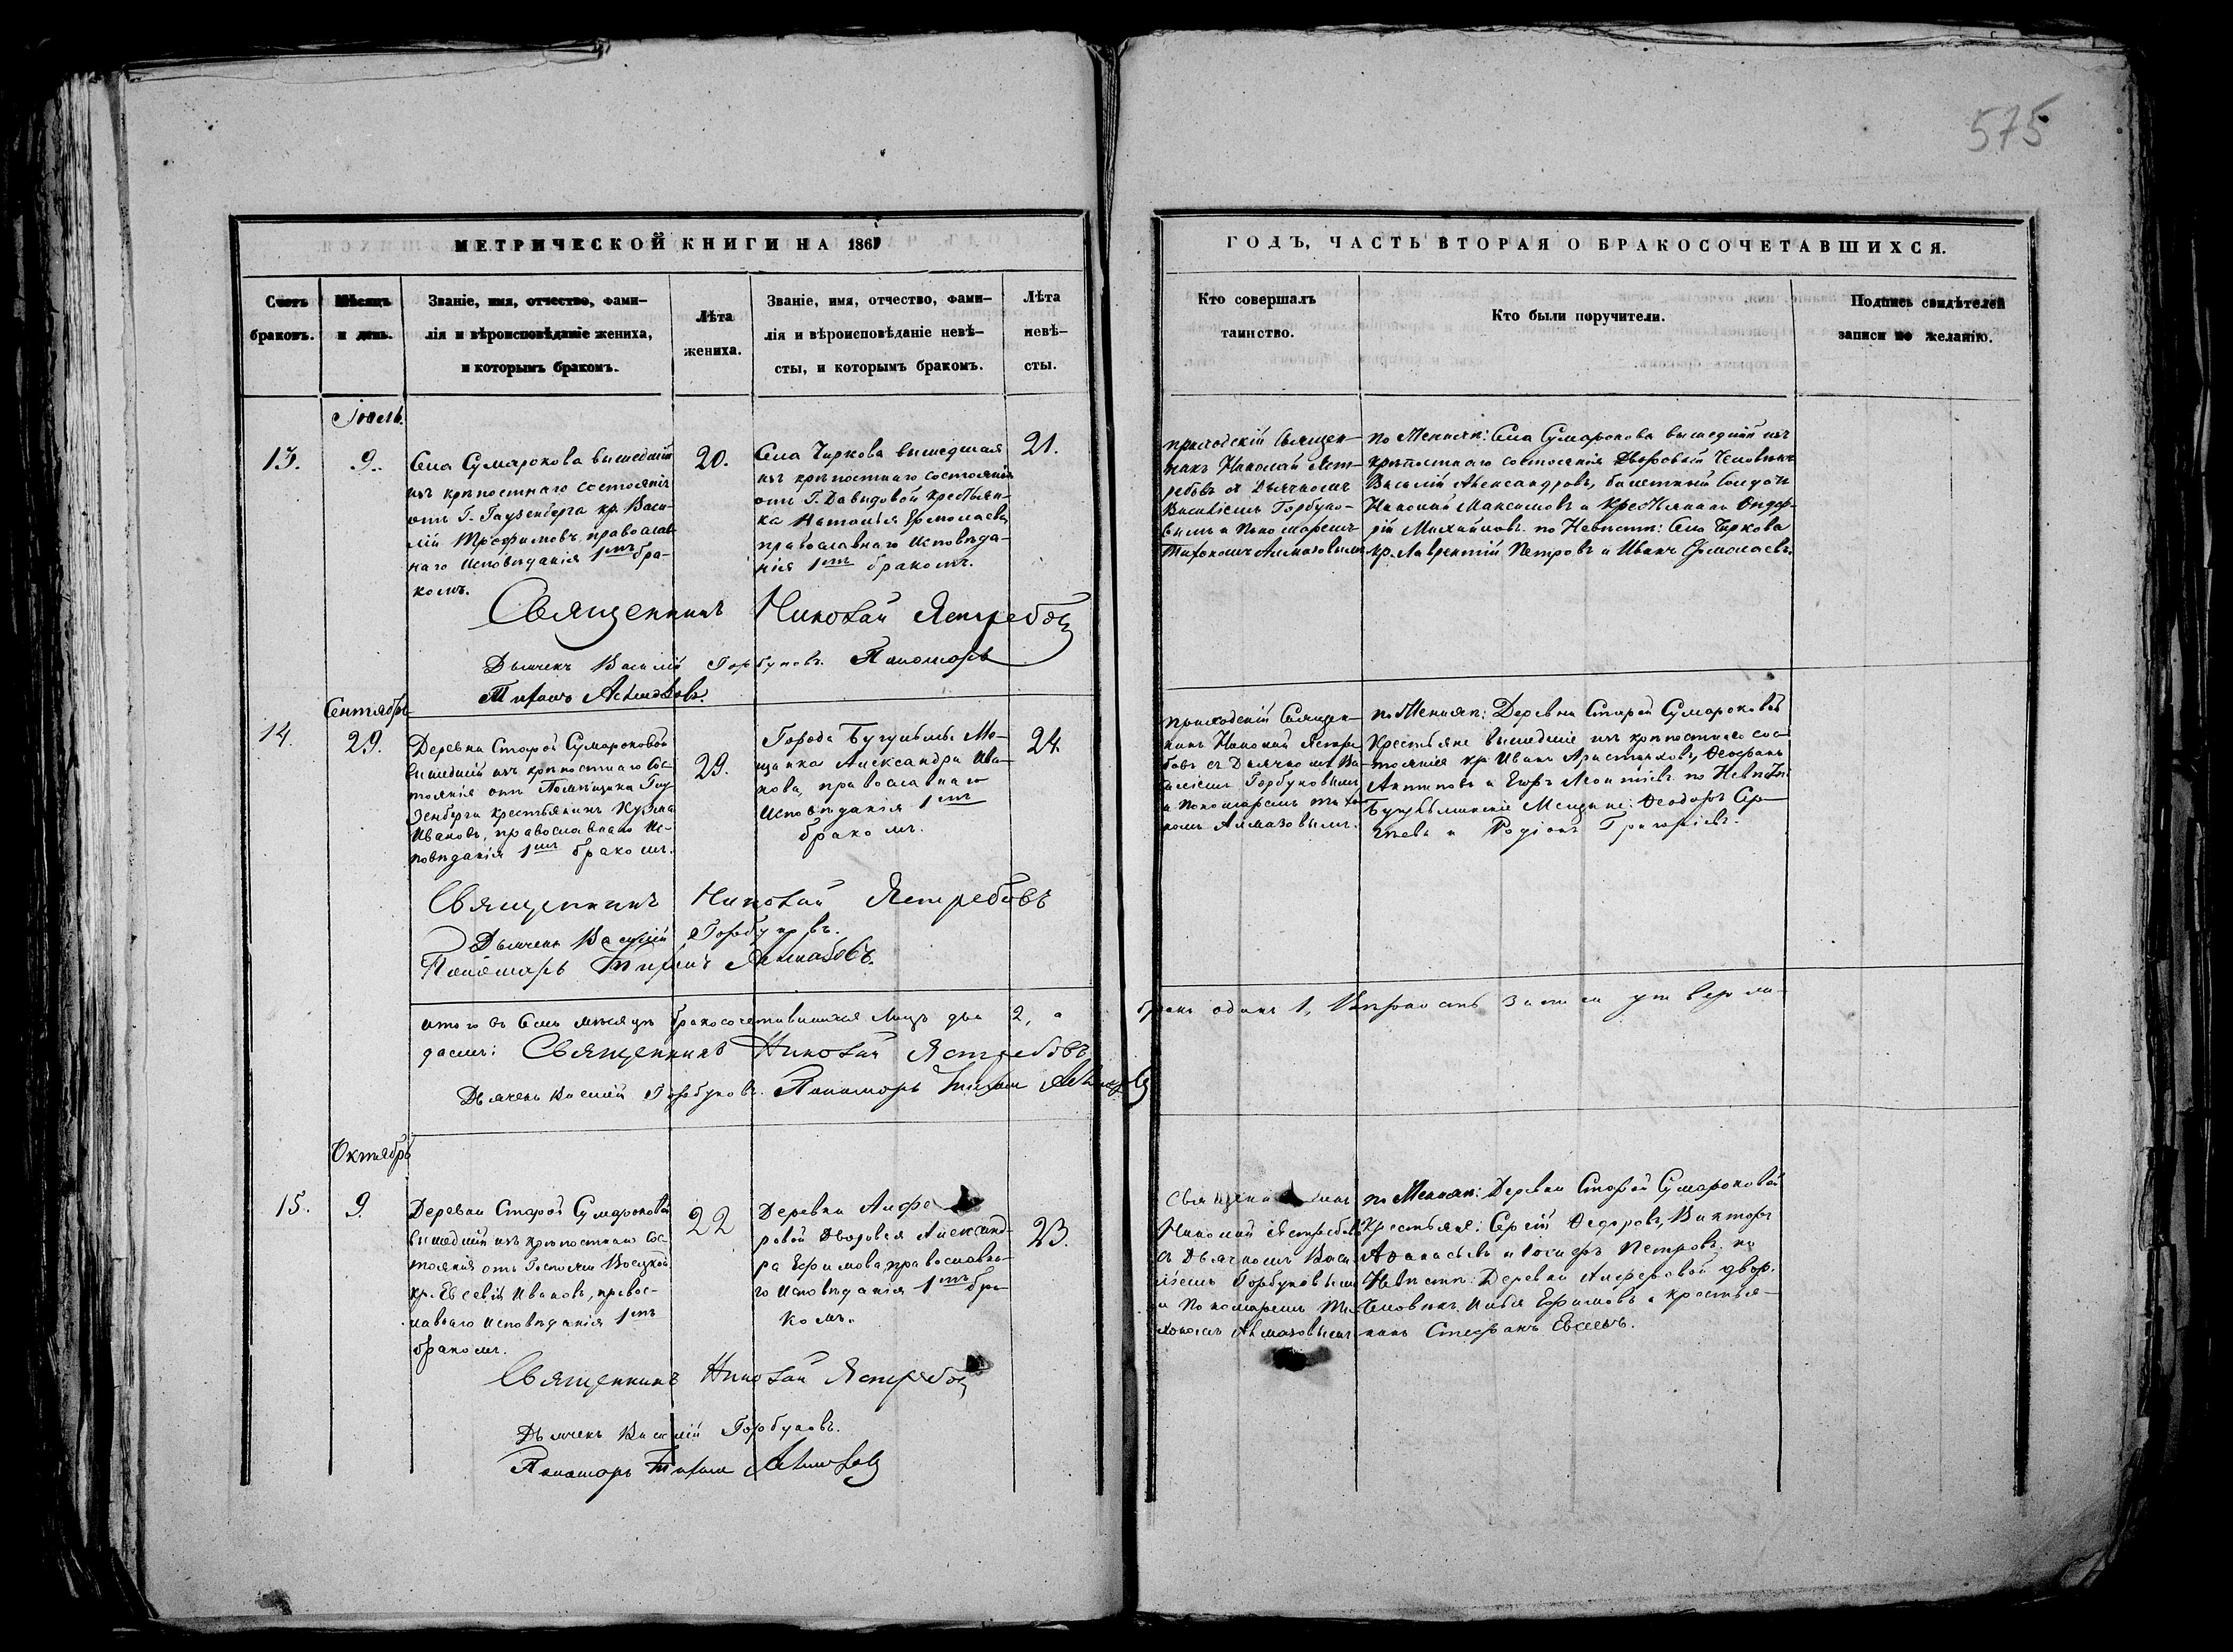 575
МЕТРИЧЕСКОЙ КНИГИ НА 1861
Счетъ
браковъ.
Мѣсяцъ
и день.
Званіе, имя, отчество, фами-
лія и вѣроисповѣданіе жениха,
и которымъ бракомъ.
Лѣта
жениха.
Званіе, имя, отчество, фами-
лія и вѣроисповѣданіе невѣ-
сты, и которымъ бракомъ.
Лѣта
невѣ-
сты.
ГОДЪ, ЧАСТЬ ВТОРАЯ О БРАКОСОЧЕТАВШИХСЯ.
Кто совершалъ
таинство.
Кто были поручители.
Подпись свидѣтелей
записи по желанію.
13.
9.
Села Сумарокова вышедшій
изъ крѣпостнаго состоянія
отъ Г. Гаузенберга кр. Васи-
лій Трофимовъ православ-
наго исповѣданія 1мъ бра-
комъ.
20.
Села Чиркова вышедшая
изъ крѣпостнаго состоянія
отъ Г. Давыдовой крестьян-
ка Наталья Ермолаева
православнаго исповѣда-
нія 1мъ бракомъ.
21.
приходскій Священ-
никъ Николай Яст-
ребовъ съ Дьячкомъ
Василіемъ Горбуно-
вымъ и Пономаремъ
Тихономъ Алмазовымъ
по Женихѣ: Села Сумарокова вышедшій изъ
крѣпостнаго состоянія Дворовый Человѣкъ
Василій Александровъ, билетный Солдатъ
Николай Максимовъ и Крестьянинъ
Михайловъ. по Невѣстѣ: Села Чиркова
кр. Лаврентій Петровъ и Иванъ Ермолаевъ.
Священникъ Николай Ястребовъ
Дьячекъ Василій Горбуновъ. Пономарь
Тихонъ Алмазовъ.
Сентябрь
14.
29.
Деревни Старой Сумароковой
вышедшій изъ крѣпостнаго Сос-
тоянія отъ Помѣщика Гау-
зенберга крестьянинъ Кузма
Ивановъ, православнаго Ис-
повѣданія 1мъ бракомъ.
29.
Города Бугульмы Мѣ-
щанка Александра Ива-
нова, православнаго
Исповѣданія 1мъ
бракомъ.
24.
приходскій Священ-
никъ Николай Ястре-
бовъ съ Дьячкомъ Ва-
силіемъ Горбуновымъ
и Пономаремъ Тихо-
номъ Алмазовымъ.
по Женихѣ: Деревни Старой Сумароковой
Крестьяне вышедшіе изъ крѣпостнаго сос-
тоянія кр. Иванъ Аристарховъ, Феофанъ
Антиповъ и Егоръ Леонтьевъ по Невѣстѣ
Бугульминскіе Мещане: Феодоръ Сер-
гѣевъ и Родіонъ Григорьевъ.
Священникъ Николай Ястребовъ
Дьячекъ Василій Горбуновъ.
Пономарь Тихонъ Алмазовъ.
итого въ семъ мѣсяцѣ бракосочетавшихся лицъ два 2, а
бракъ одинъ 1, Вѣрность записи утверж-
даемъ: Священникъ Николай Ястребовъ
Дьячекъ Василій Горбуновъ. Пономарь Тихонъ Алмазовъ
Октябрь
15.
9.
Деревни Старой Сумароковой
вышедшій изъ крѣпостнаго Сос-
тоянія отъ Госпожи
кр. Евсевій Ивановъ, правос-
лавнаго исповѣданія 1мъ
бракомъ.
22
Деревни Алфе-
ровой Дворовая Александ-
ра Ефимова, православна-
го Исповѣданія 1мъ бра-
комъ.
23.
Священникъ
Николай Ястребовъ
съ Дьячкомъ Васи-
ліемъ Горбуновымъ
и Пономаремъ Ти-
хономъ Алмазовымъ
по Женихѣ: Деревни Старой Сумароковой
Крестьяне: Сергій Федоровъ, Викторъ
Афанасьевъ и Іосифъ Петровъ. по
Невѣстѣ: Деревни Алферовой двор.
Человѣкъ Илья Ефимовъ и крестья-
нинъ Стефанъ Евсеевъ.
Священникъ Николай Ястребовъ
Дьячекъ Василій Горбуновъ.
Пономарь Тихонъ Алмазовъ